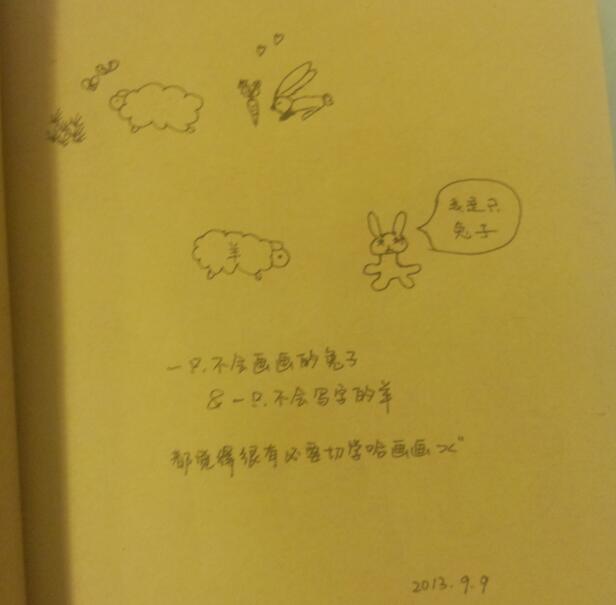 我是只
兔子
羊
一只不会画画的兔子
& 一只不会写字的羊
都觉得很有必要切学哈画画
2013.9.9